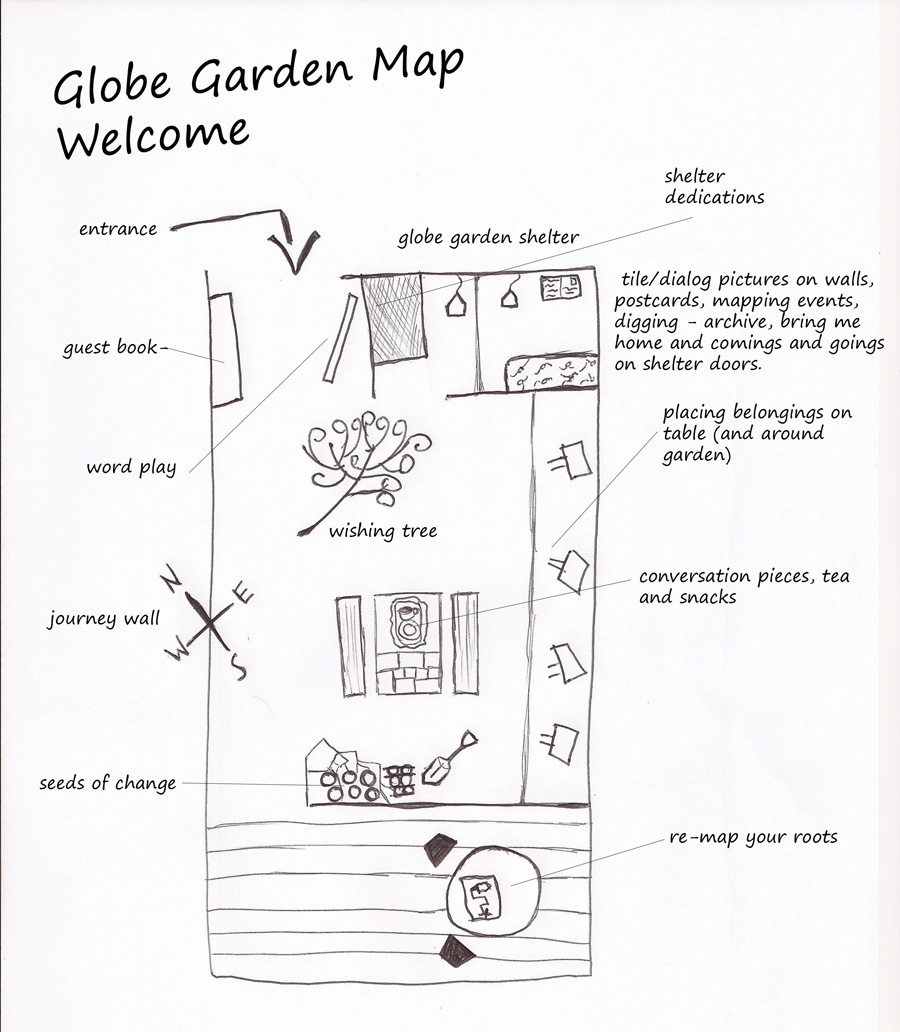 Globe Garden Map
Welcome
shelter
dedications
entrance
globe garden shelter
tile/dialog pictures on walls,
postcards, mapping events,
digging - archive, bring me
home and comings and goings
on shelter doors.
guest book
placing belongings on
table (and around
garden)
word play
wishing tree
N
E
W
S
journey wall
conversation pieces, tea
and snacks
seeds of change
re-map your roots